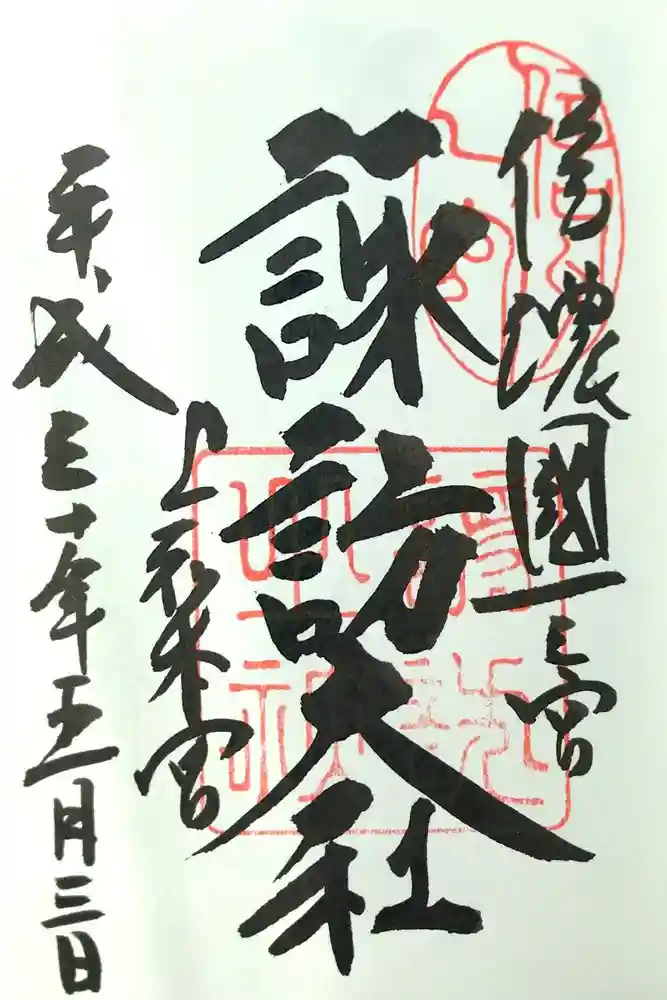 信濃國一之宮
諏訪大社
上社本宮
平成三十年五月三日